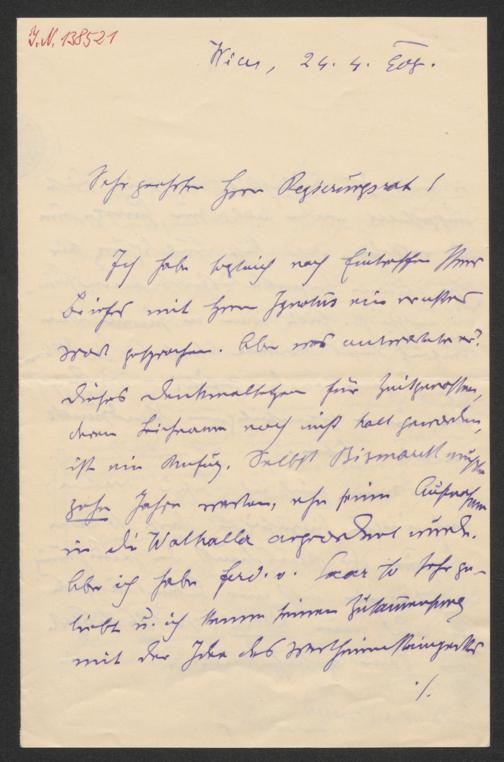 J.N. 138521
Wien, 24. 4. 908.
Sehr geehrter Herr Regierungsrat!
Ich habe sogleich nach Eintreffen Ihres
Briefes mit Herrn Ignotus ein ernstes
Wort gesprochen. Aber was antwortete er?
Dieses Denkmalsetzen für Zeitgenossen,
deren Leichnam noch nicht kalt geworden,
ist ein Unfug. Selbst Bismarck mußte
zehn Jahre warten, ehe seine Aufnahme
in die Walhalla angeordnet wurde.
Aber ich habe Ferd. v. Saar so sehr ge-
liebt u. ich kenne seinen Zusammenhang
mit der Idee des Wertheimsteinparkes
./.